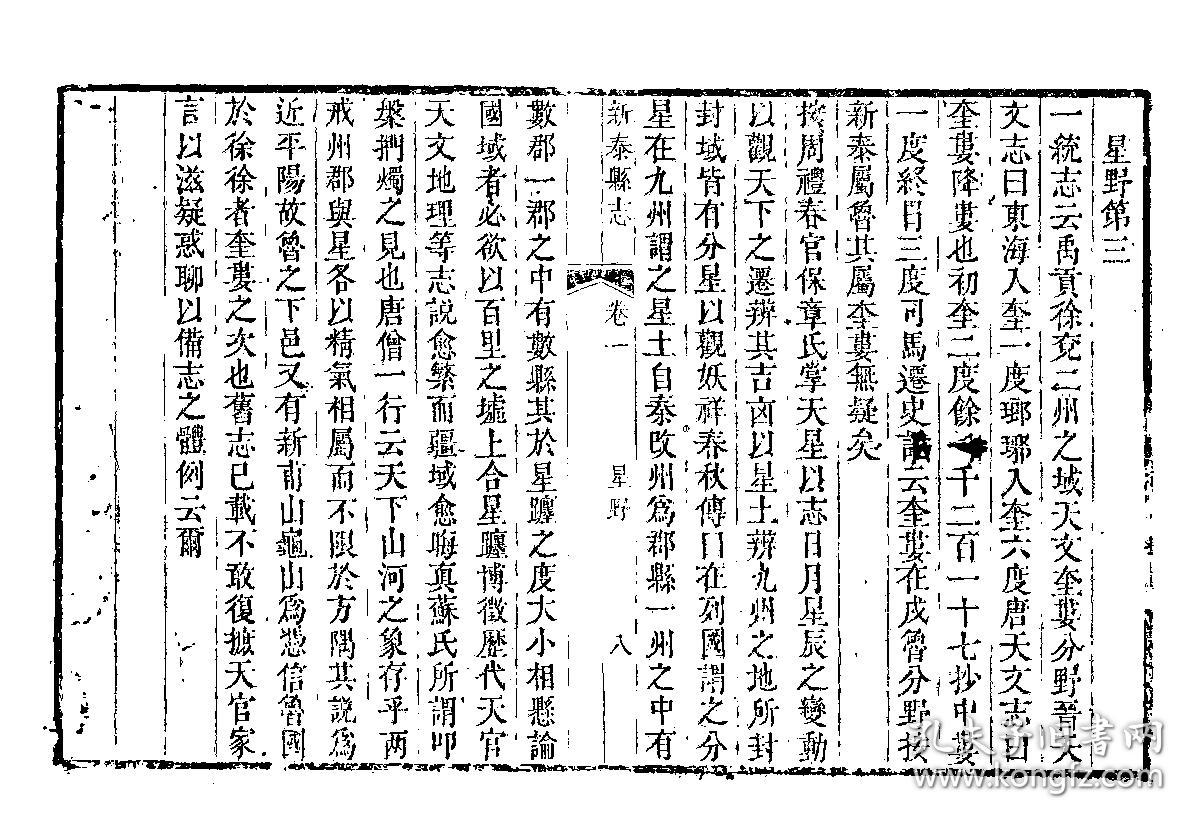 星野第三
一統志云禹貢徐兗二州之域天文奎婁分野晉天
文志曰東海入奎一度瑯琊入奎六度唐天文志曰
奎婁降婁也初奎二度餘 千二百一十七抄中婁
一度終胃三度司馬遷史記云奎婁在戌魯分野按
新泰屬魯其屬奎婁無疑矣
按周禮春官保章氏掌天星以志日月星辰之變動
以觀天下之遷辨其吉凶以星土辨九州之地所封
封域皆有分星以觀妖祥春秋傳曰在列國謂之分
星在九州謂之星土自秦改州為郡縣一州之中有
新泰縣志 卷一 星野 八
數郡一郡之中有數縣其於星躔之度大小相懸論
國域者必欲以百里之墟上合星躔博徵歷代天官
天文地理等志說愈繁而疆域愈晦真蘇氏所謂叩
槃捫燭之見也唐僧一行云天下山河之象存乎两
戒州郡與星各以精氣相屬而不限於方隅其說為
近平陽故魯之下邑又有新甫山龜山為憑信魯國
於徐徐者奎婁之次也舊志已載不敢復摭天官家
言以滋疑惑聊以備志之體例云爾
孔夫子旧书网
www.kongfz.com